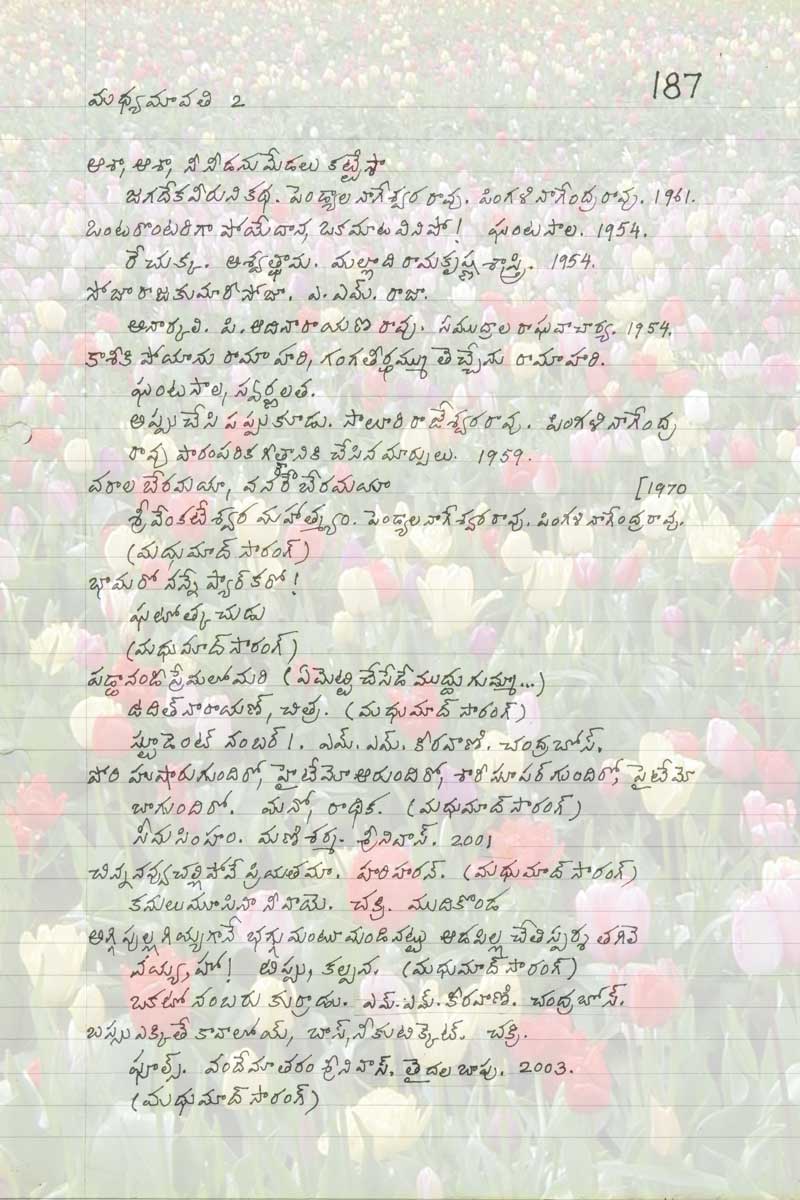 187
మధ్యమావతి 2
ఆశా, ఆశా, నీ నీడను మేడలు కట్టేశా
జగదేకవీరుని కథ. పెండ్యాల నాగేశ్వర రావు. పింగళి నాగేంద్ర రావు. 1961.
ఒంటరొంటరిగా పోయేదాన, ఒకమాట వినిపో! ఘంటసాల. 1954.
రేచుక్క. అశ్వత్థామ. మల్లాది రామకృష్ణ శాస్త్రి. 1954.
సోజా రాజకుమారీ సోజా. ఎ. ఎమ్. రాజా.
అనార్కలి. పి. ఆదినారాయణ రావు. సముద్రాల రాఘవాచార్య. 1954.
కాశీకి పోయాను రామా హరి, గంగతీర్థమ్ము తెచ్చేను రామా హరి.
ఘంటసాల, స్వర్ణలత.
అప్పుచేసి పప్పు కూడు. సాలూరి రాజేశ్వర రావు. పింగళి నాగేంద్ర
రావు పారంపరిక గీతానికి చేసిన మార్పులు. 1959.
వరాల బేరమయా, వనరౌ బేరమయా [1970
శ్రీ వేంకటేశ్వర మహాత్మ్యం. పెండ్యాల నాగేశ్వర రావు. పింగళి నాగేంద్ర రావు.
(మధుమాద్ సారంగ్)
భామరో నన్నే ప్యార్ కరో!
ఘటోత్కచుడు
(మధుమాద్ సారంగ్)
పడ్డానండి ప్రేమలో మరి (ఏమెట్టి చేసేడే ముద్దు గుమ్మా...)
ఉదిత్ నారాయణ్, చిత్ర. (మధుమాద్ సారంగ్)
స్టూడెంట్ నంబర్ 1. ఎమ్. ఎమ్. కీరవాణి. చంద్రబోస్.
పోరి హుషారుగుందిరో, హైటేమో ఆరుందిరో, శారీ సూపర్ గుందిరో, సైటేమో
బాగుందిరో. మనో, రాధిక. (మధుమాద్ సారంగ్)
సీమసింహం. మణిశర్మ. శ్రీనివాస్. 2001
చిన్నగ నవ్వు చల్లిపోవే ప్రియతమా. హరిహరన్. (మధుమాద్ సారంగ్)
కనులు మూసినా నీవాయె. చక్రి. ముదికొండ
అగ్గిపుల్ల గియ్యగానే భగ్గుమంటూ మండినట్టు ఆడపిల్ల చేతి స్పర్శ తగిలె
నయ్య, హో! టిప్పు, కల్పన. (మధుమాద్ సారంగ్)
ఒకటో నంబరు కుర్రాడు. ఎమ్. ఎమ్. కీరవాణి. చంద్రబోస్.
బస్సు ఎక్కితే కావాలోయ్, బాస్, నీకు టిక్కెట్. చక్రి.
ఫూల్స్. వందేమాతరం శ్రీనివాస్. తైదల బాపు. 2003.
(మధుమాద్ సారంగ్)